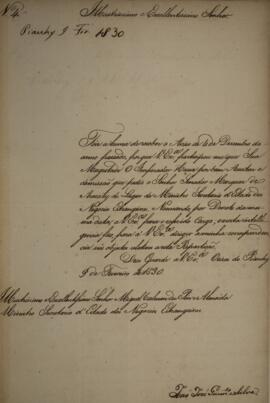 Nº 4.
Illustrissimo e Excellentissimo Senhor
Piauhy 9 Fev. 1830
Tive a honra de receber o Aviso de 4 de Dezembro do
anno passado, em que V. Exª participou-me que Sua
Magestade O Imperador Houve por bem Acceitar a
demissão que pedio o Senhor Senador Marquez de
Aracaty do Lugar de Ministro Secretario d'Estado dos
Negocios Estrangeiros, e Nomeando por Decreto da mesma
data, a V. Exª para o referido Cargo,
para V. Exª dirigir a minha correspondencia
em objectos relativos a esta Repartição.
Deos Guarde a V. Exª Oeiras do Piauhy
9 de Fevereiro de 1830.
Illustrissimo e Excellentissimo Senhor Miguel Calmon du Pin e Almeida
Ministro Secretario d'Estado dos Negocios Estrangeiros
João José